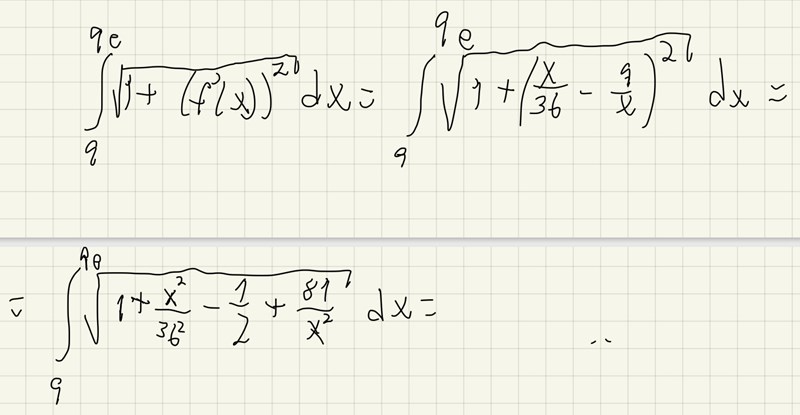 ∫₉^{9e} √(1 + (f'(x))²) dx = ∫₉^{9e} √(1 + (x/36 − 9/x)²) dx =
= ∫₉^{9e} √(1 + x²/36² − 1/2 + 81/x²) dx =